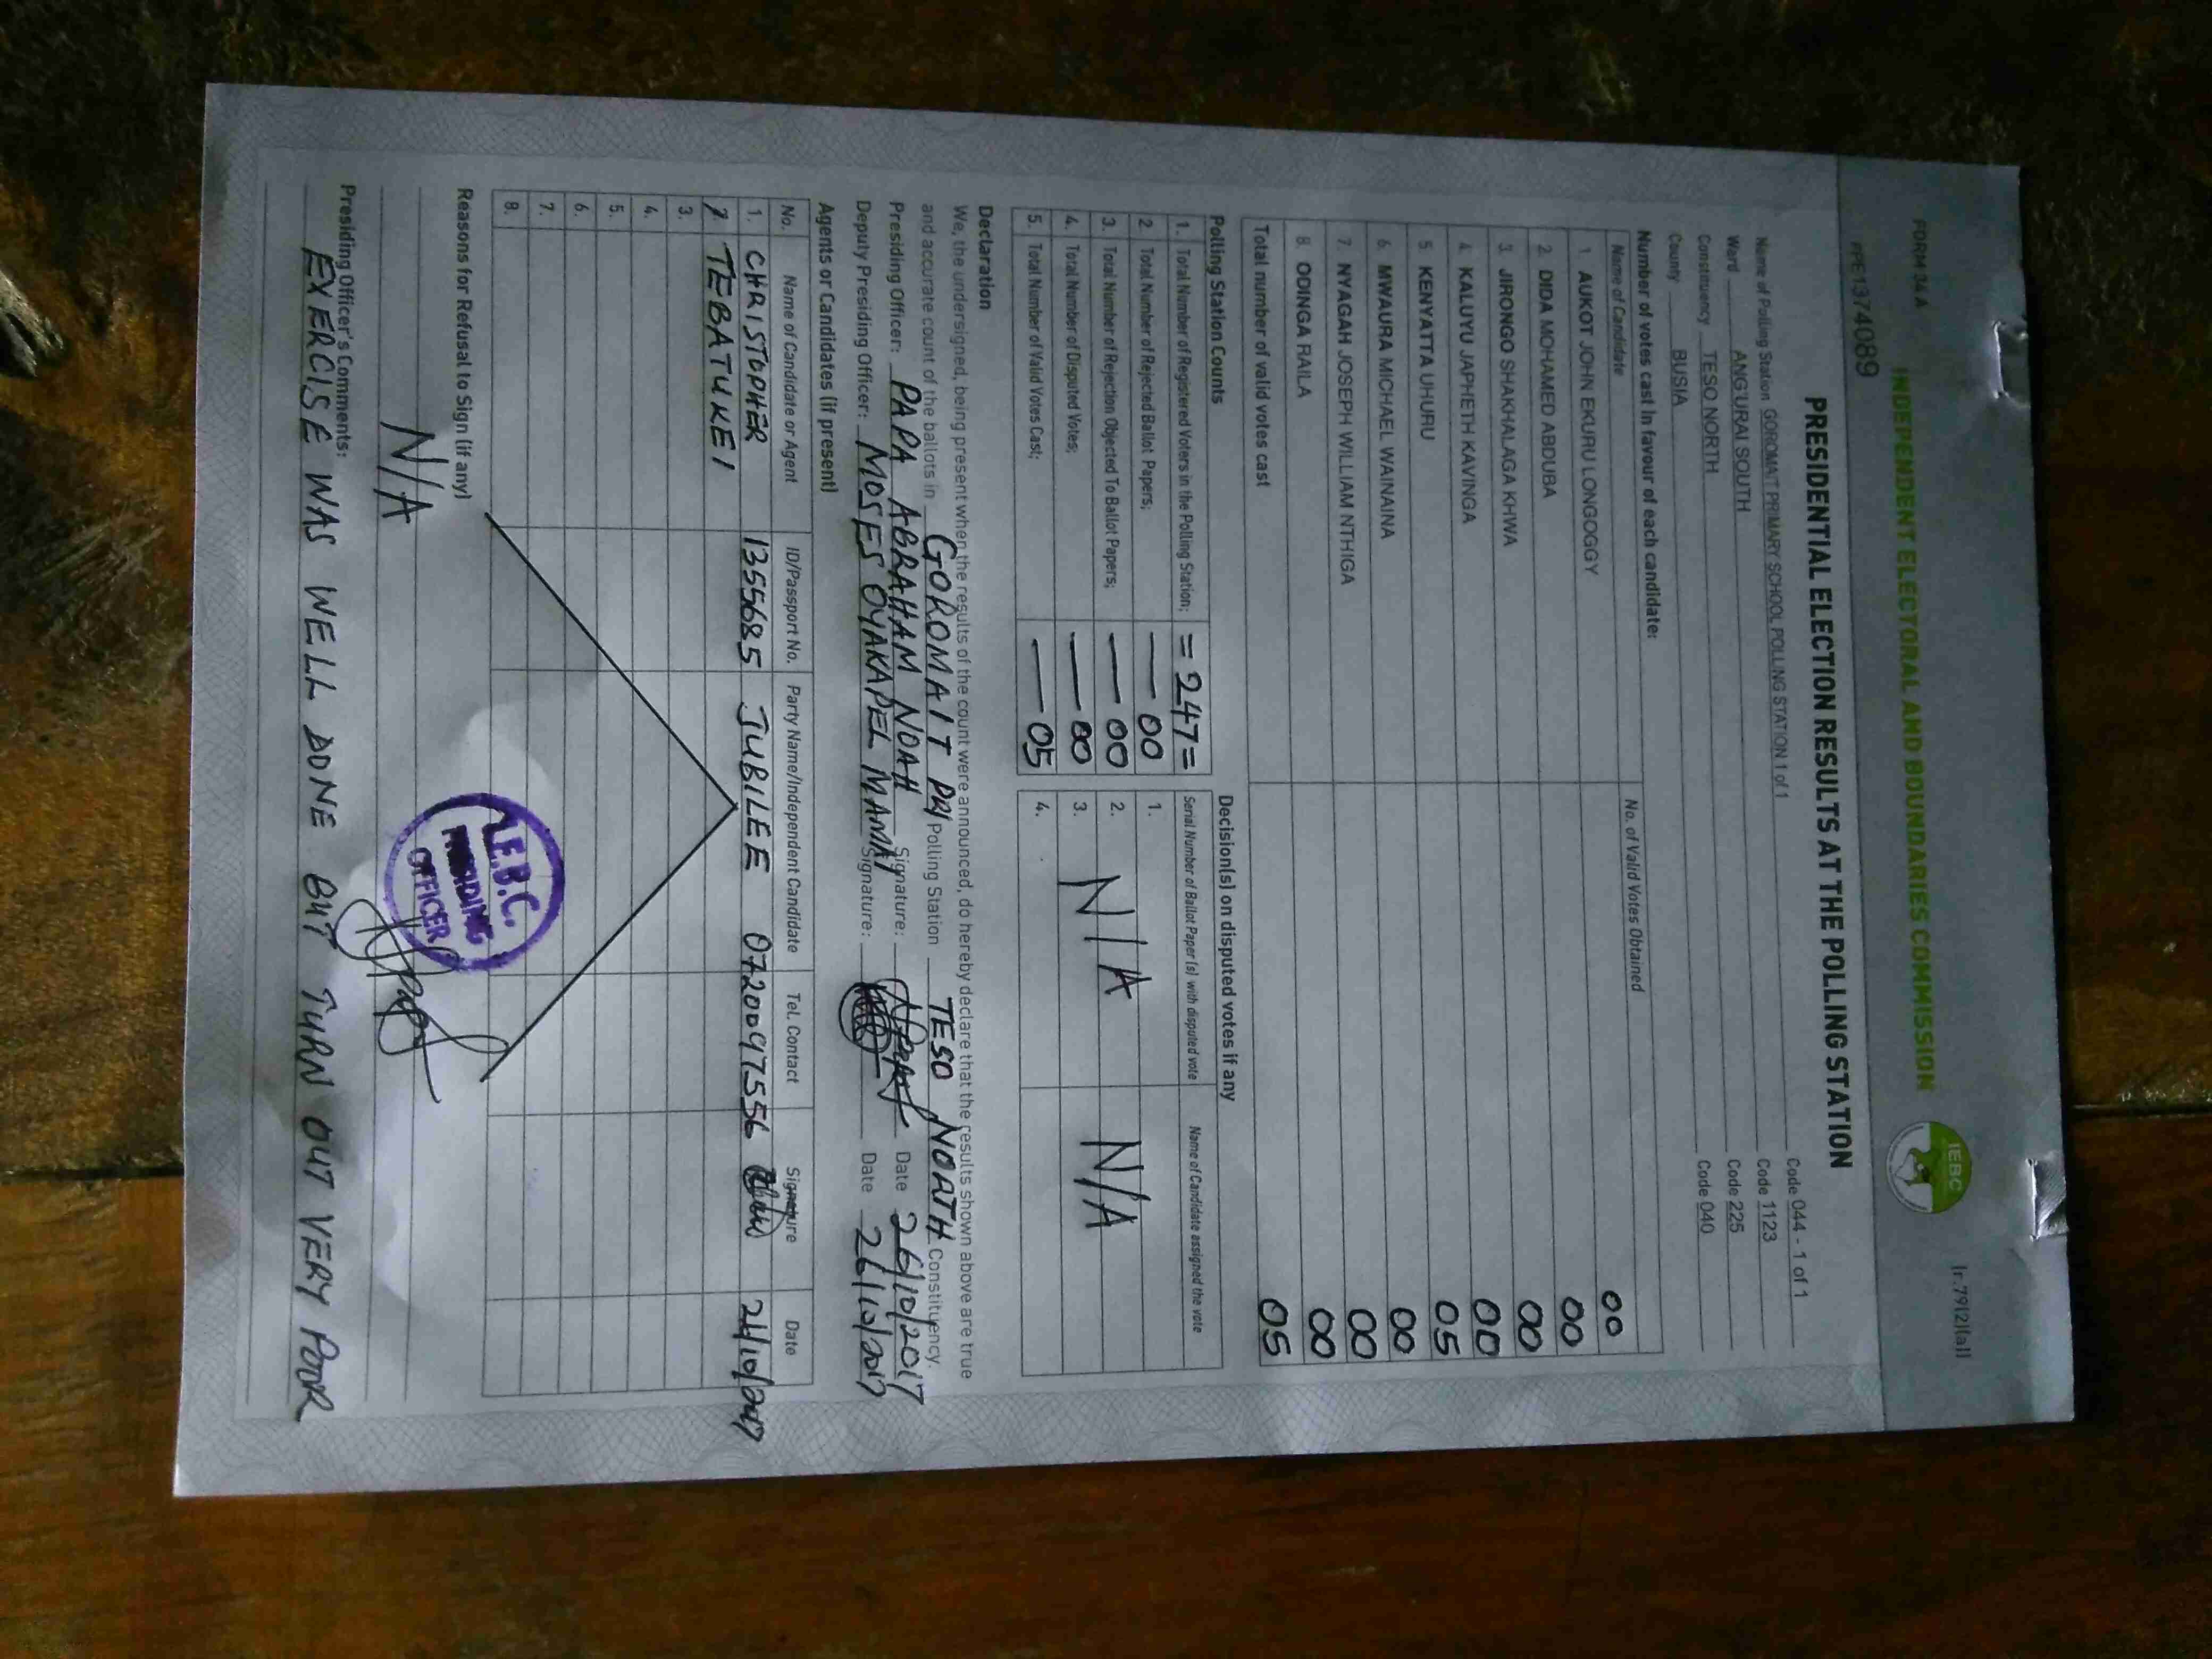 FORM 34 A
[r.79(2)(a)]
INDEPENDENT ELECTORAL AND BOUNDARIES COMMISSION
IEBC
PPE1374089
PRESIDENTIAL ELECTION RESULTS AT THE POLLING STATION
Name of Polling Station GOROMAIT PRIMARY SCHOOL POLLING STATION 1 of 1 Code 044 - 1 of 1
Ward ANG'URAI SOUTH Code 1123
Constituency TESO NORTH Code 225
County BUSIA Code 040
Number of votes cast in favour of each candidate:
Name of Candidate No. of Valid Votes Obtained
1 AUKOT JOHN EKURU LONGOGGY 00
2. DIDA MOHAMED ABDUBA 00
3. JIRONGO SHAKHALAGA KHWA 00
4. KALUYU JAPHETH KAVINGA 00
5 KENYATTA UHURU 05
6. MWAURA MICHAEL WAINAINA 00
7. NYAGAH JOSEPH WILLIAM NTHIGA 00
8. ODINGA RAILA 00
Total number of valid votes cast 05
Polling Station Counts
1. Total Number of Registered Voters in the Polling Station; = 247 =
2. Total Number of Rejected Ballot Papers; — 00
3. Total Number of Rejection Objected To Ballot Papers; — 00
4. Total Number of Disputed Votes; — 00
5. Total Number of Valid Votes Cast; — 05
Decision(s) on disputed votes if any
Serial Number of Ballot Paper (s) with disputed vote Name of Candidate assigned the vote
1.
2. N/A N/A
3.
4.
Declaration
We, the undersigned, being present when the results of the count were announced, do hereby declare that the results shown above are true
and accurate count of the ballots in GOROMAIT PRY Polling Station TESO NOATH Constituency.
Presiding Officer: PAPA ABRAHAM NOAH Signature: Date 26/10/2017
Deputy Presiding Officer: MOSES OYAKAPEL MAMAI Signature: Date 26/10/2017
Agents or Candidates (if present)
No. Name of Candidate or Agent ID/Passport No. Party Name/Independent Candidate Tel. Contact Signature Date
1. CHRISTOPHER 1355685 JUBILEE 0720097556 26/10/2017
2. TEBATUKEI
3.
4.
5.
6.
7.
8.
Reasons for Refusal to Sign (if any)
N/A
I.E.B.C.
PRESIDING
OFFICER
Presiding Officer's Comments:
EXERCISE WAS WELL DONE BUT TURN OUT VERY POOR